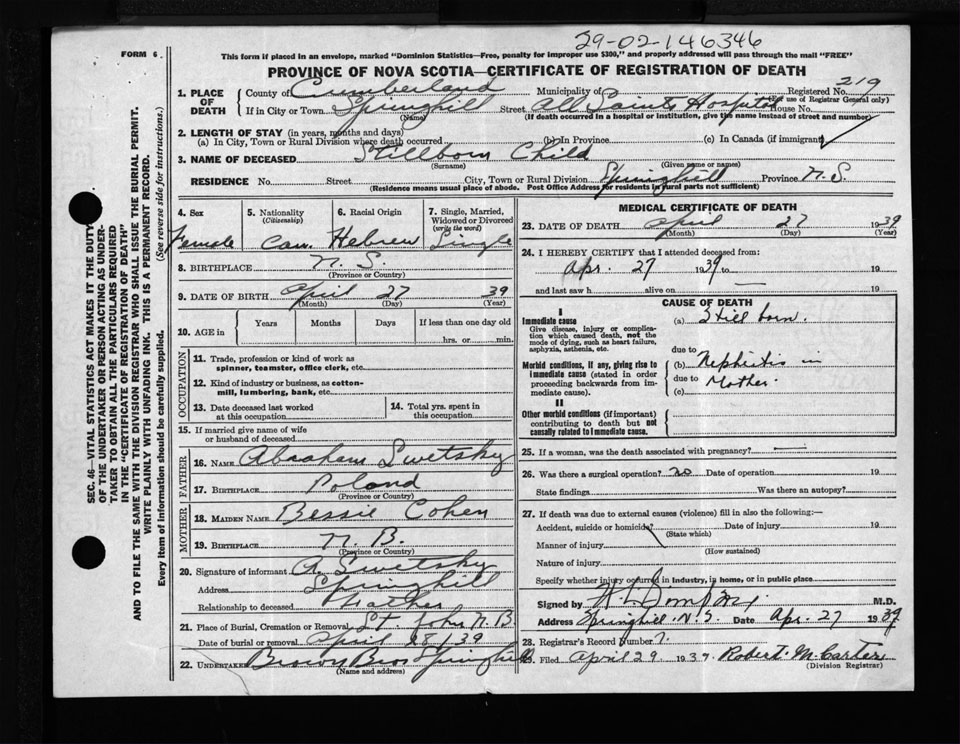 29-02-146346
FORM 6
This form if placed in an envelope, marked "Dominion Statistics—Free, penalty for improper use $300," and properly addressed will pass through the mail "FREE"
PROVINCE OF NOVA SCOTIA—CERTIFICATE OF REGISTRATION OF DEATH
1. PLACE OF DEATH
County of Cumberland Municipality of Registered No. 219
(For use of Registrar General only)
If in City or Town Springhill Street All Saints Hospital House No.
(Name) (If death occurred in a hospital or institution, give the name instead of street and number)
2. LENGTH OF STAY (in years, months and days)
(a) In City, Town or Rural Division where death occurred (b) In Province (c) In Canada (if immigrant)
3. NAME OF DECEASED Stillborn Child
(Surname) (Given name or names)
RESIDENCE No. Street City, Town or Rural Division Springhill Province N.S.
(Residence means usual place of abode. Post Office Address for residents in rural parts not sufficient)
4. Sex Female
5. Nationality (Citizenship) Can.
6. Racial Origin Hebrew
7. Single, Married, Widowed or Divorced (write the word) Single
8. BIRTHPLACE N. S.
(Province or Country)
9. DATE OF BIRTH April 27 39
(Month) (Day) (Year)
10. AGE in Years Months Days If less than one day old
hrs. or min.
OCCUPATION
11. Trade, profession or kind of work as spinner, teamster, office clerk, etc.
12. Kind of industry or business, as cotton-mill, lumbering, bank, etc.
13. Date deceased last worked at this occupation
14. Total yrs. spent in this occupation
15. If married give name of wife or husband of deceased
FATHER
16. NAME Abraham Swetsky
17. BIRTHPLACE Poland
(Province or Country)
MOTHER
18. MAIDEN NAME Bessie Cohen
19. BIRTHPLACE N. B.
(Province or Country)
20. Signature of informant A Swetsky
Address Springhill
Relationship to deceased Father
21. Place of Burial, Cremation or Removal St. John N.B.
Date of burial or removal April 28/39
22. UNDERTAKER Brown Bros Springhill
(Name and address)
MEDICAL CERTIFICATE OF DEATH
23. DATE OF DEATH April 27 1939
(Month) (Day) (Year)
24. I HEREBY CERTIFY that I attended deceased from:
Apr. 27 1939 to 19
and last saw h alive on 19
CAUSE OF DEATH
I
Immediate cause
Give disease, injury or complication which caused death, not the mode of dying, such as heart failure, asphyxia, asthenia, etc.
(a) Still born.
due to
Morbid conditions, if any, giving rise to immediate cause (stated in order proceeding backwards from immediate cause).
(b) Nephritis in
due to Mother.
(c)
II
Other morbid conditions (if important) contributing to death but not causally related to immediate cause.
25. If a woman, was the death associated with pregnancy?
26. Was there a surgical operation? no Date of operation 19
State findings Was there an autopsy?
27. If death was due to external causes (violence) fill in also the following:—
Accident, suicide or homicide? Date of injury 19
(State which)
Manner of injury
(How sustained)
Nature of injury
Specify whether injury occurred in industry, in home, or in public place
Signed by M.D.
Address Springhill. N.S. Date Apr. 27 1939
28. Registrar's Record Number 7.
29. Filed April 29 1939 Robert McCarter
(Division Registrar)
SEC. 46—VITAL STATISTICS ACT MAKES IT THE DUTY
OF THE UNDERTAKER OR PERSON ACTING AS UNDER-
TAKER TO OBTAIN ALL THE PARTICULARS REQUIRED
IN THE "CERTIFICATE OF REGISTRATION OF DEATH"
AND TO FILE THE SAME WITH THE DIVISION REGISTRAR WHO SHALL ISSUE THE BURIAL PERMIT.
WRITE PLAINLY WITH UNFADING INK. THIS IS A PERMANENT RECORD.
Every item of information should be carefully supplied. (See reverse side for instructions.)